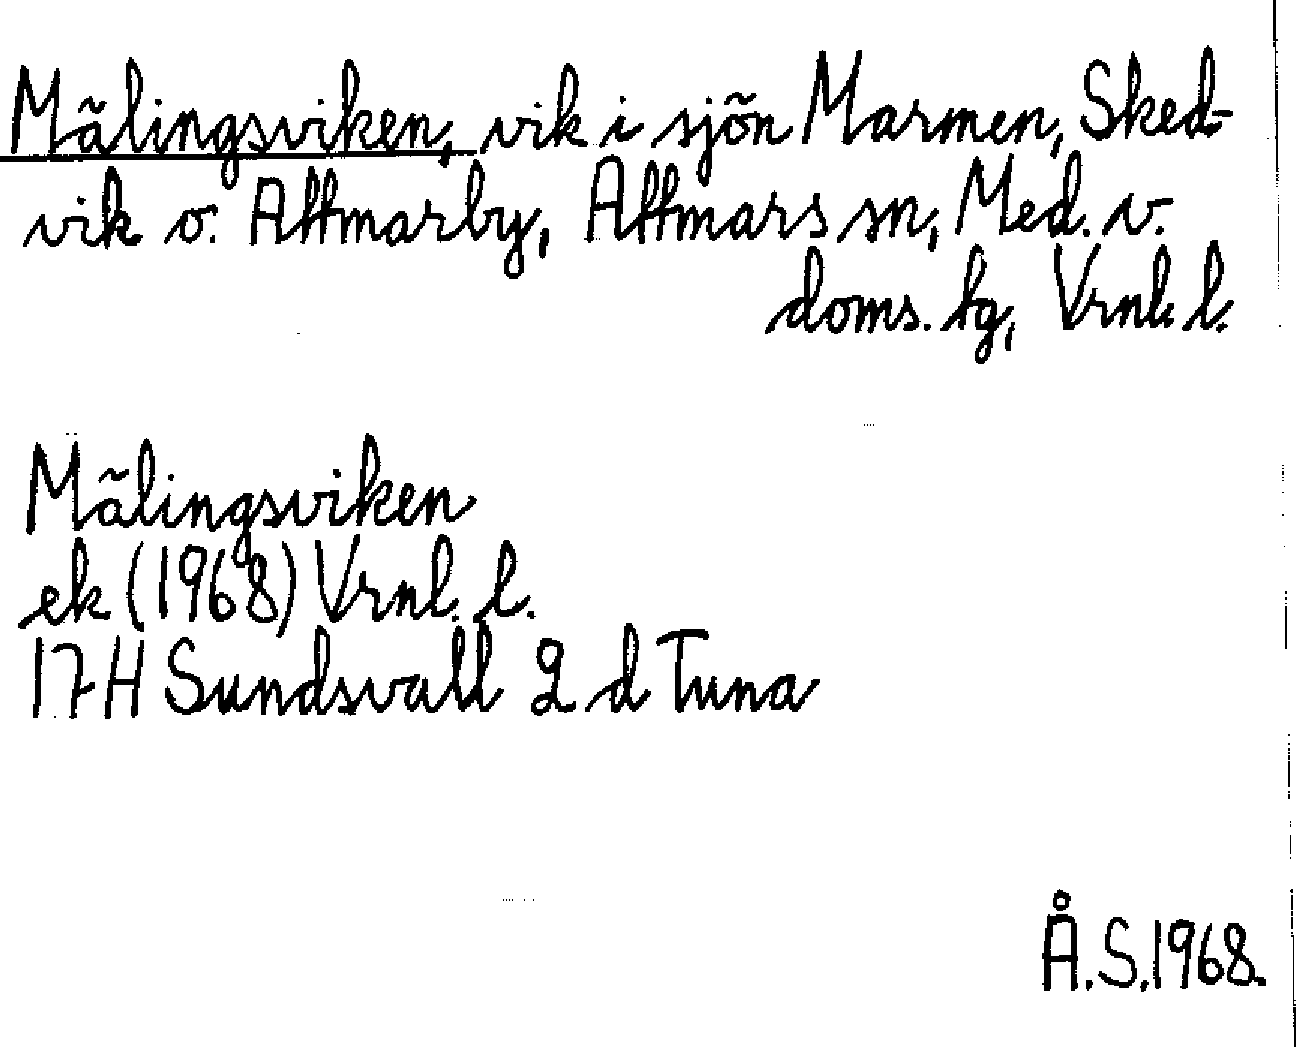 Mãlingsviken, vik i sjõn Marmen, Sked-
vik o. Attmarby, Attmars sn, Med. v.
doms. tg, Vrnl. l.
Mãlingsviken
ek (1968) Vrnl. l.
17H Sundsvall 2 d Tuna
Å.S.1968.